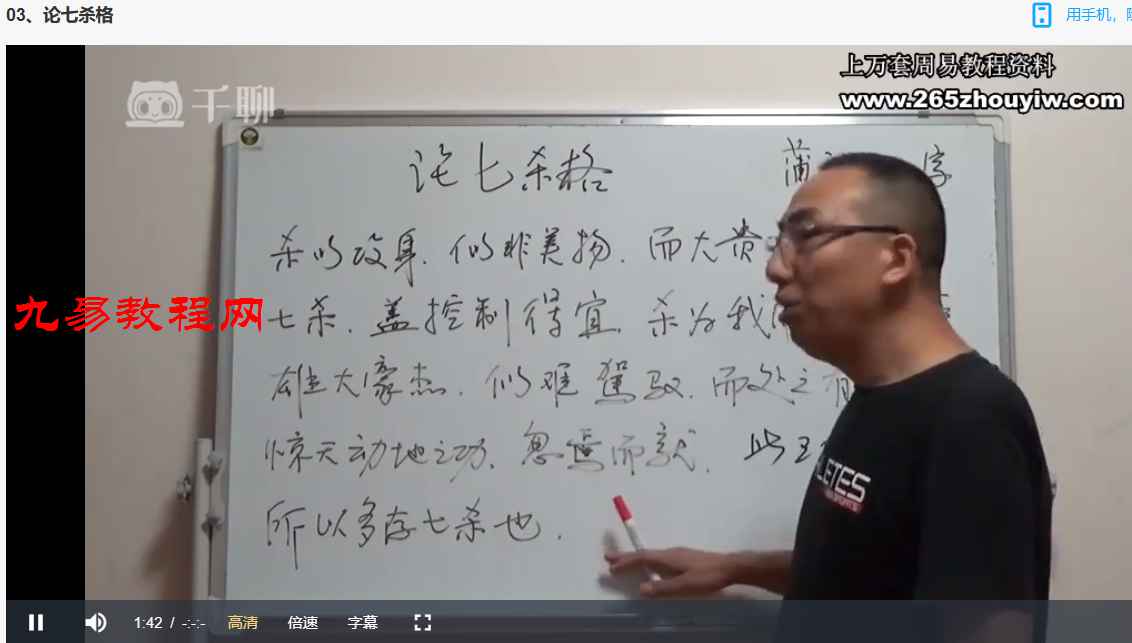 03、论七杀格
用手机，
上万套周易教程资料
www.265zhouyiw.com
千聊
论七杀格 蒲
杀以攻身．似非美物．而大贵
九易教程网
七杀．盖控制得宜．杀为我
雄大豪杰．似难驾驭．而处之有
惊天动地之功．忽焉而就．此王
所以多存七杀也．
LETES
1:42 / -:-:- 高清 倍速 字幕